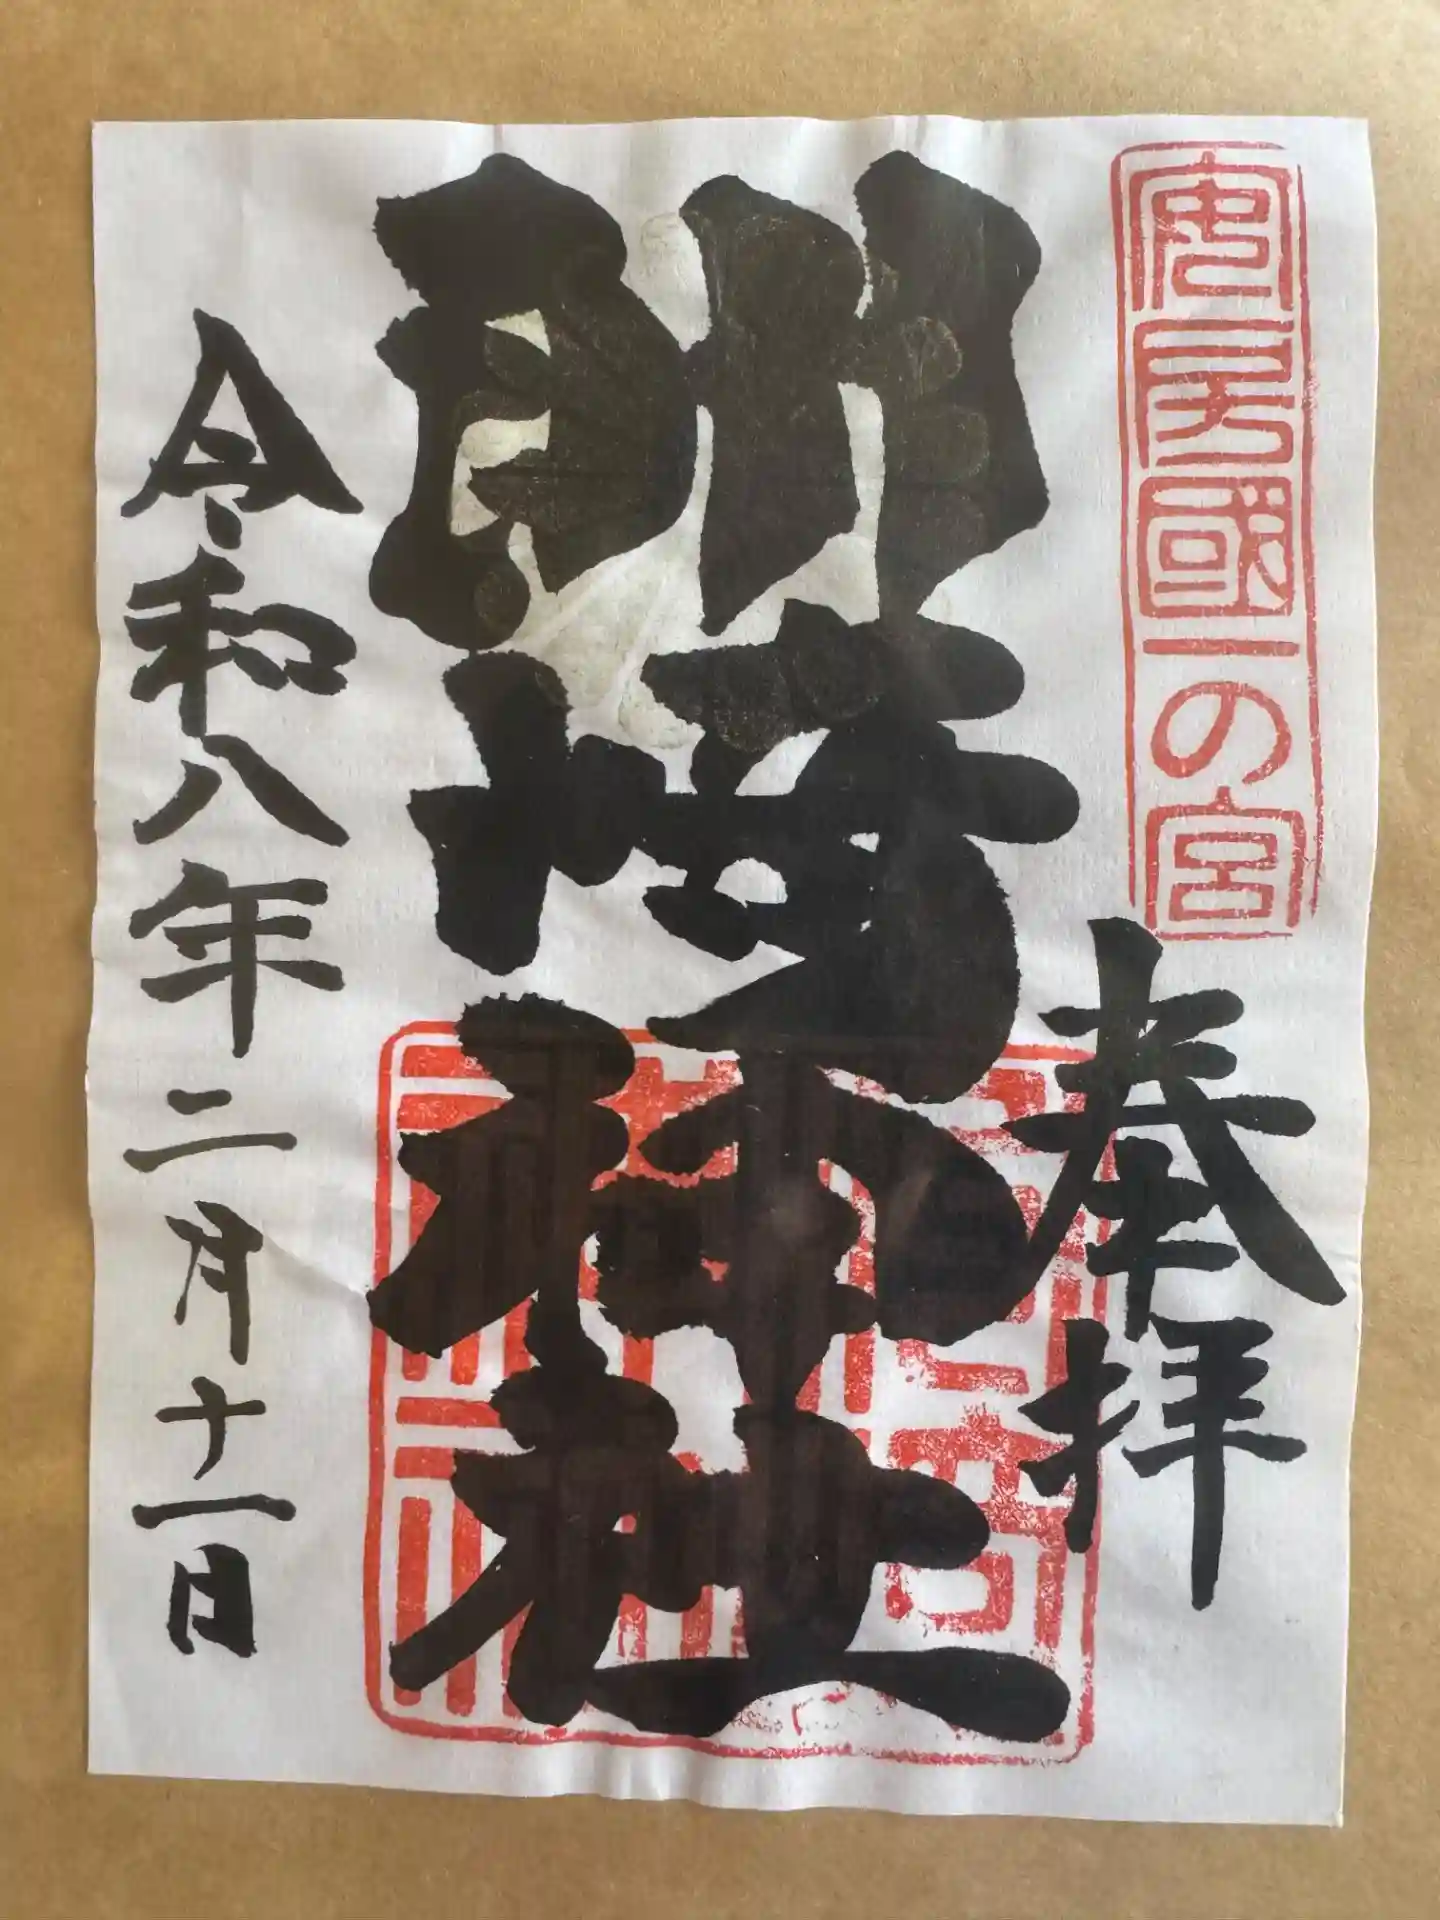 安房國一の宮
奉拝
洲崎神社
令和八年二月十一日